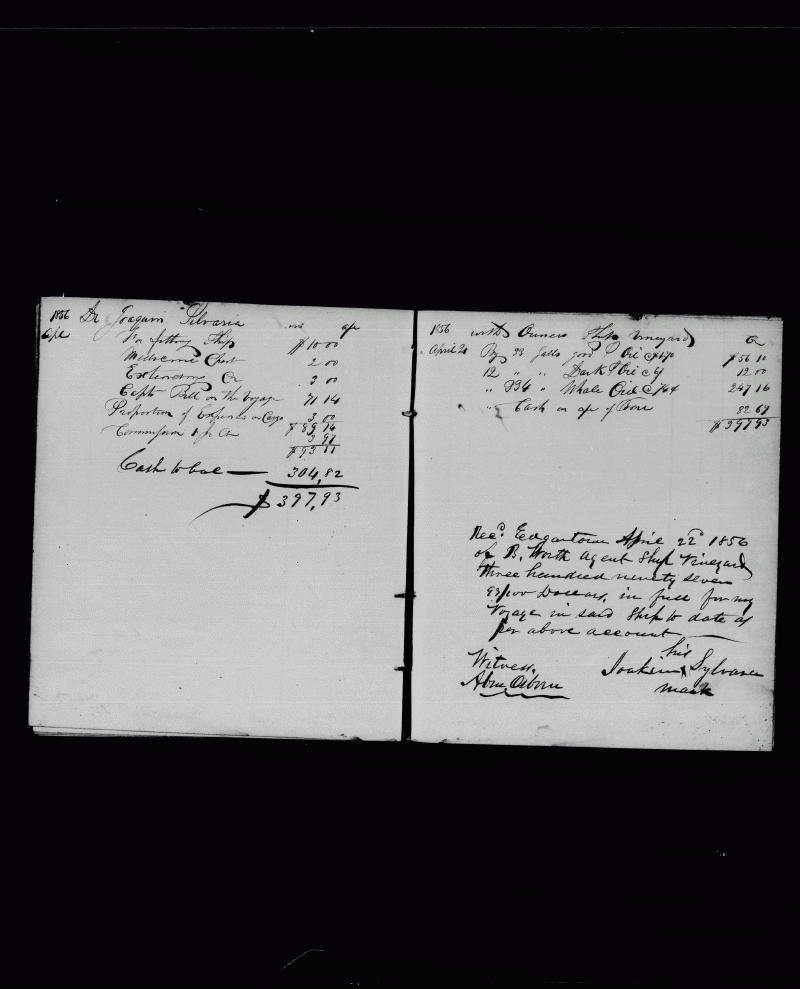 1856 Dr Joaquin Silvaria
Apl For fitting Ship $10 00
Medicine Chest 2 00
Extending Cr 3 00
Capts Bill on the Voyage 71 14
Proportion of Expenses on Cargo 3 00
$89 14
Commission 3 97
$93 11
Cash to bal — 304,82
$397,93
1856 with Owners Ship Vineyard Cr
April 20 By 33 galls good Oil $56 10
12 " " Dark Oil 12 00
" 336 " Whale Oil 247 16
" Cash on of Bone 82 67
$397 93
Recd. Edgartown April 22d 1856
of B. Worth Agent Ship Vineyard
three hundred ninety seven
93/100 Dollars, in full for my
Voyage in said Ship to date as
per above account —
his
Witness, Joakim X Sylvaria
Abm Osborn mark